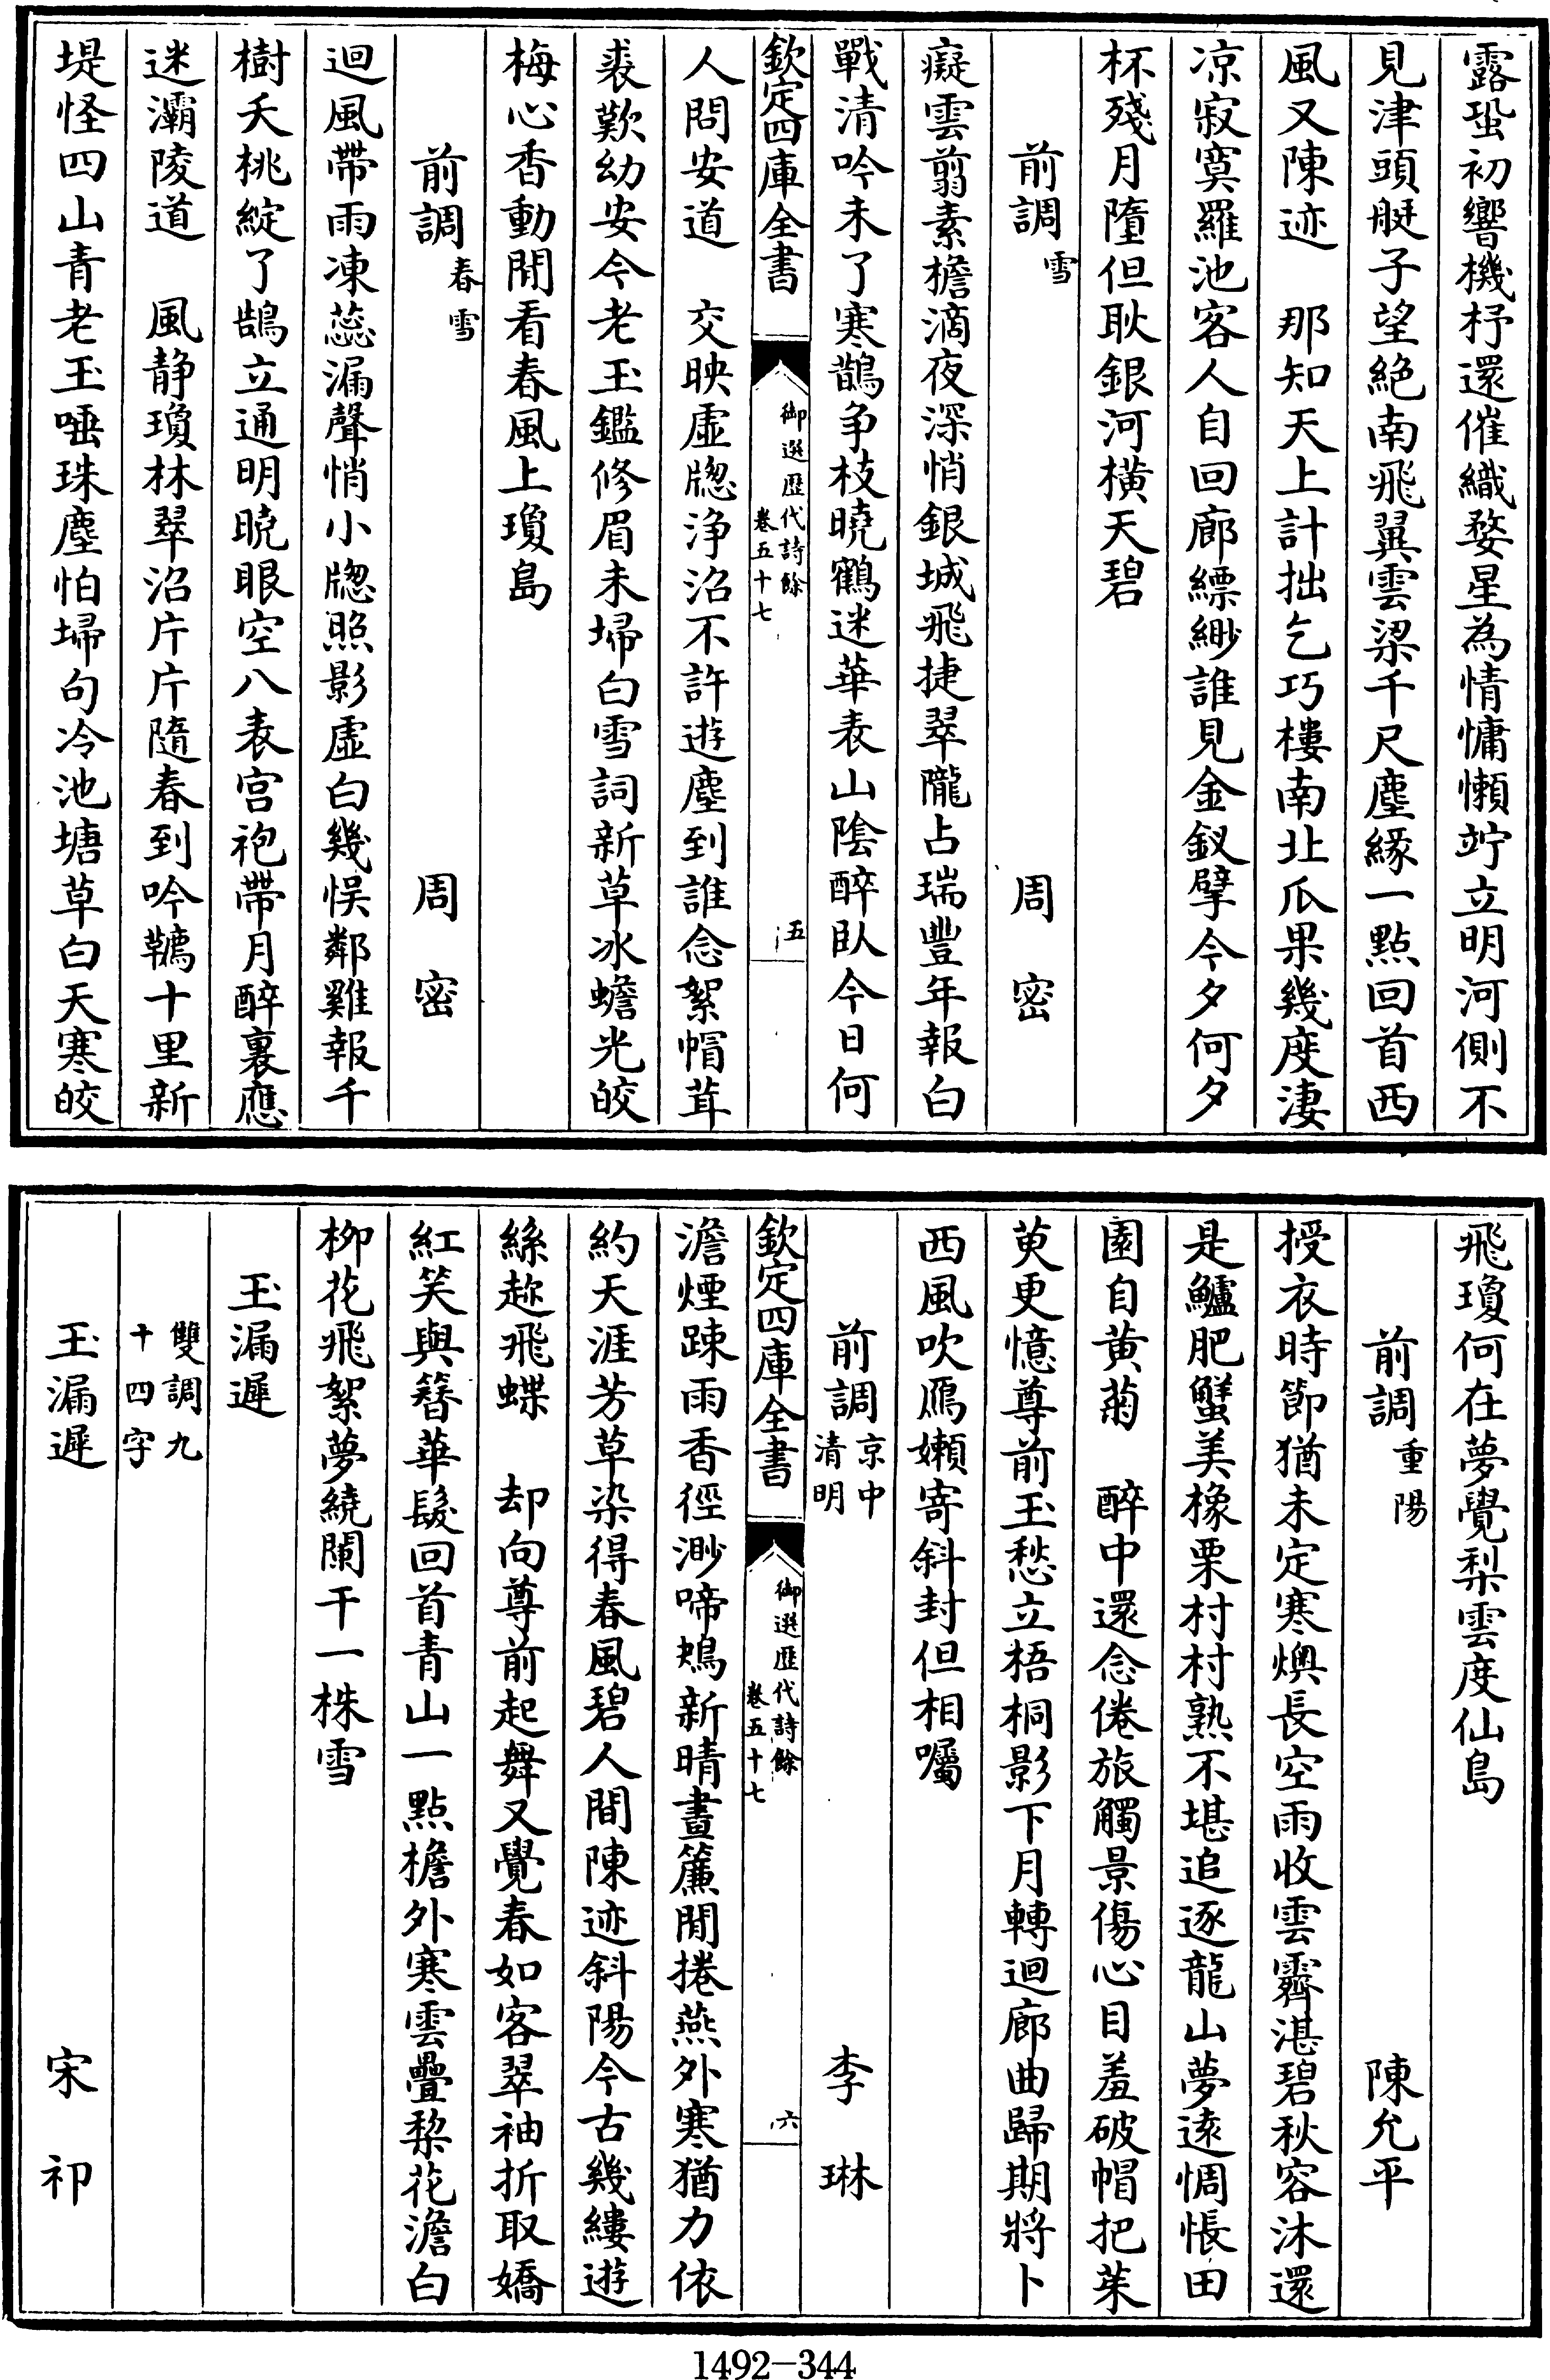 露蛩初響機杼還催織婺星為情慵懶竚立明河側不
見津頭艇子望絕南飛翼雲梁千尺塵緣一點回首西
風又陳迹　那知天上計拙乞巧樓南北瓜果幾度淒
凉寂寞羅池客人自回廊縹緲誰見金釵擘今夕何夕
杯殘月墮但耿銀河橫天碧
前調雪　周密
癡雲翦素檐滴夜深悄銀城飛捷翠隴占瑞豐年報白
戰清吟未了寒鵲爭枝曉鶴迷華表山陰醉臥今日何
欽定四庫全書　御選歷代詩餘　卷五十七　五
人問安道　交映虛牎淨沼不許遊塵到誰念絮帽茸
裘歎幼安今老玉鑑修眉未埽白雪詞新草冰蟾光皎
梅心香動閒看春風上瓊島
前調春雪　周密
迴風帶雨凍蕊漏聲悄小牎照影虛白幾悞鄰雞報千
樹夭桃綻了鵠立通明曉眼空八表宮袍帶月醉裏應
迷灞陵道　風静瓊林翠沼片片隨春到吟韉十里新
堤怪四山青老玉唾珠塵怕埽句冷池塘草白天寒皎
飛瓊何在夢覺梨雲度仙島
前調重陽　陳允平
授衣時節猶未定寒燠長空雨收雲霽湛碧秋容沐還
是鱸肥蟹美橡栗村村熟不堪追逐龍山夢遠惆悵田
園自黄菊　醉中還念倦旅觸景傷心目羞破帽把茱
萸更憶尊前玉愁立梧桐影下月轉迴廊曲歸期將卜
西風吹鴈嬾寄斜封但相囑
前調京中清明　李琳
澹煙踈雨香徑渺啼鴂新晴晝簾閒捲燕外寒猶力依
欽定四庫全書　御選歷代詩餘　卷五十七　六
約天涯芳草染得春風碧人間陳迹斜陽今古幾縷遊
絲趂飛蝶　却向尊前起舞又覺春如客翠袖折取嬌
紅笑與簪華髮回首青山一點檐外寒雲疊棃花澹白
柳花飛絮夢繞闌干一株雪
玉漏遲
雙調九十四字
玉漏遲　宋祁
1492-344